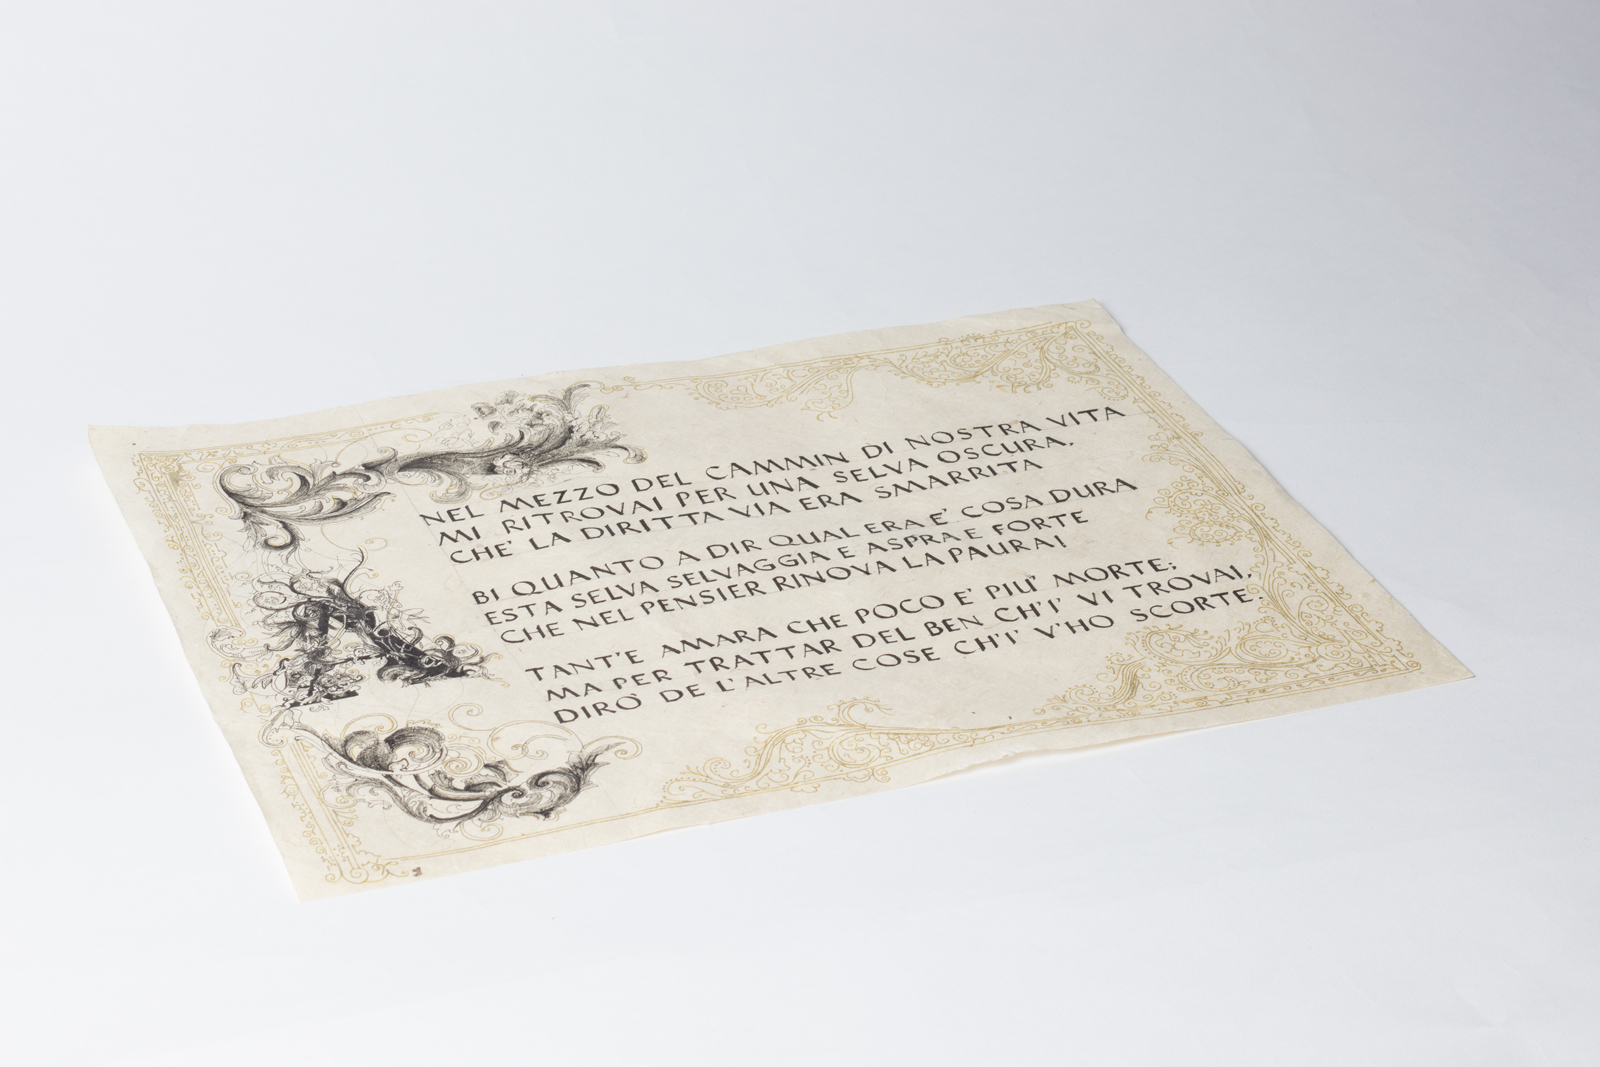 NEL MEZZO DEL CAMMIN DI NOSTRA VITA
MI RITROVAI PER UNA SELVA OSCURA,
CHE' LA DIRITTA VIA ERA SMARRITA
BI QUANTO A DIR QUAL ERA E' COSA DURA
ESTA SELVA SELVAGGIA E ASPRA E FORTE
CHE NEL PENSIER RINOVA LA PAURA!
TANT'E AMARA CHE POCO E' PIU' MORTE;
MA PER TRATTAR DEL BEN CH'I' VI TROVAI,
DIRO' DE L'ALTRE COSE CH'I' V'HO SCORTE.